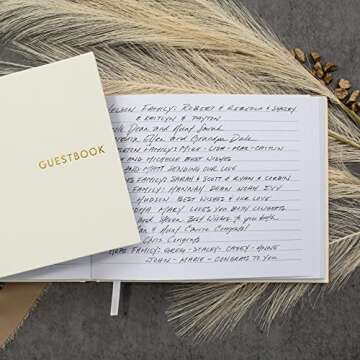 GUESTBOOK
FAMILY: ROBERT & REBECCA & STACEY
& KAITLYN & PAYTON
Dean and Aunt Sarah
Ellen and Grandpa Dale
FAMILY: MIKE - LISA - ALEX - CAITLIN
AND MICHELLE BEST WISHES
AND MATT SENDING OUR LOVE
FAMILY: SARAH & SCOTT & RYAN & CORBIN
FAMILY: HANNAH DEAN NOAH IVY
HUDSON BEST WISHES & OUR LOVE
MARY LOVES YOU BOTH CONGRATS
Best Wishes To you both
& Aunt Carrie Congrats!
Chris Congrats
FAMILY: GREG - STACEY - CASEY - ANNE
JOHN - MARIE - CONGRATS TO YOU